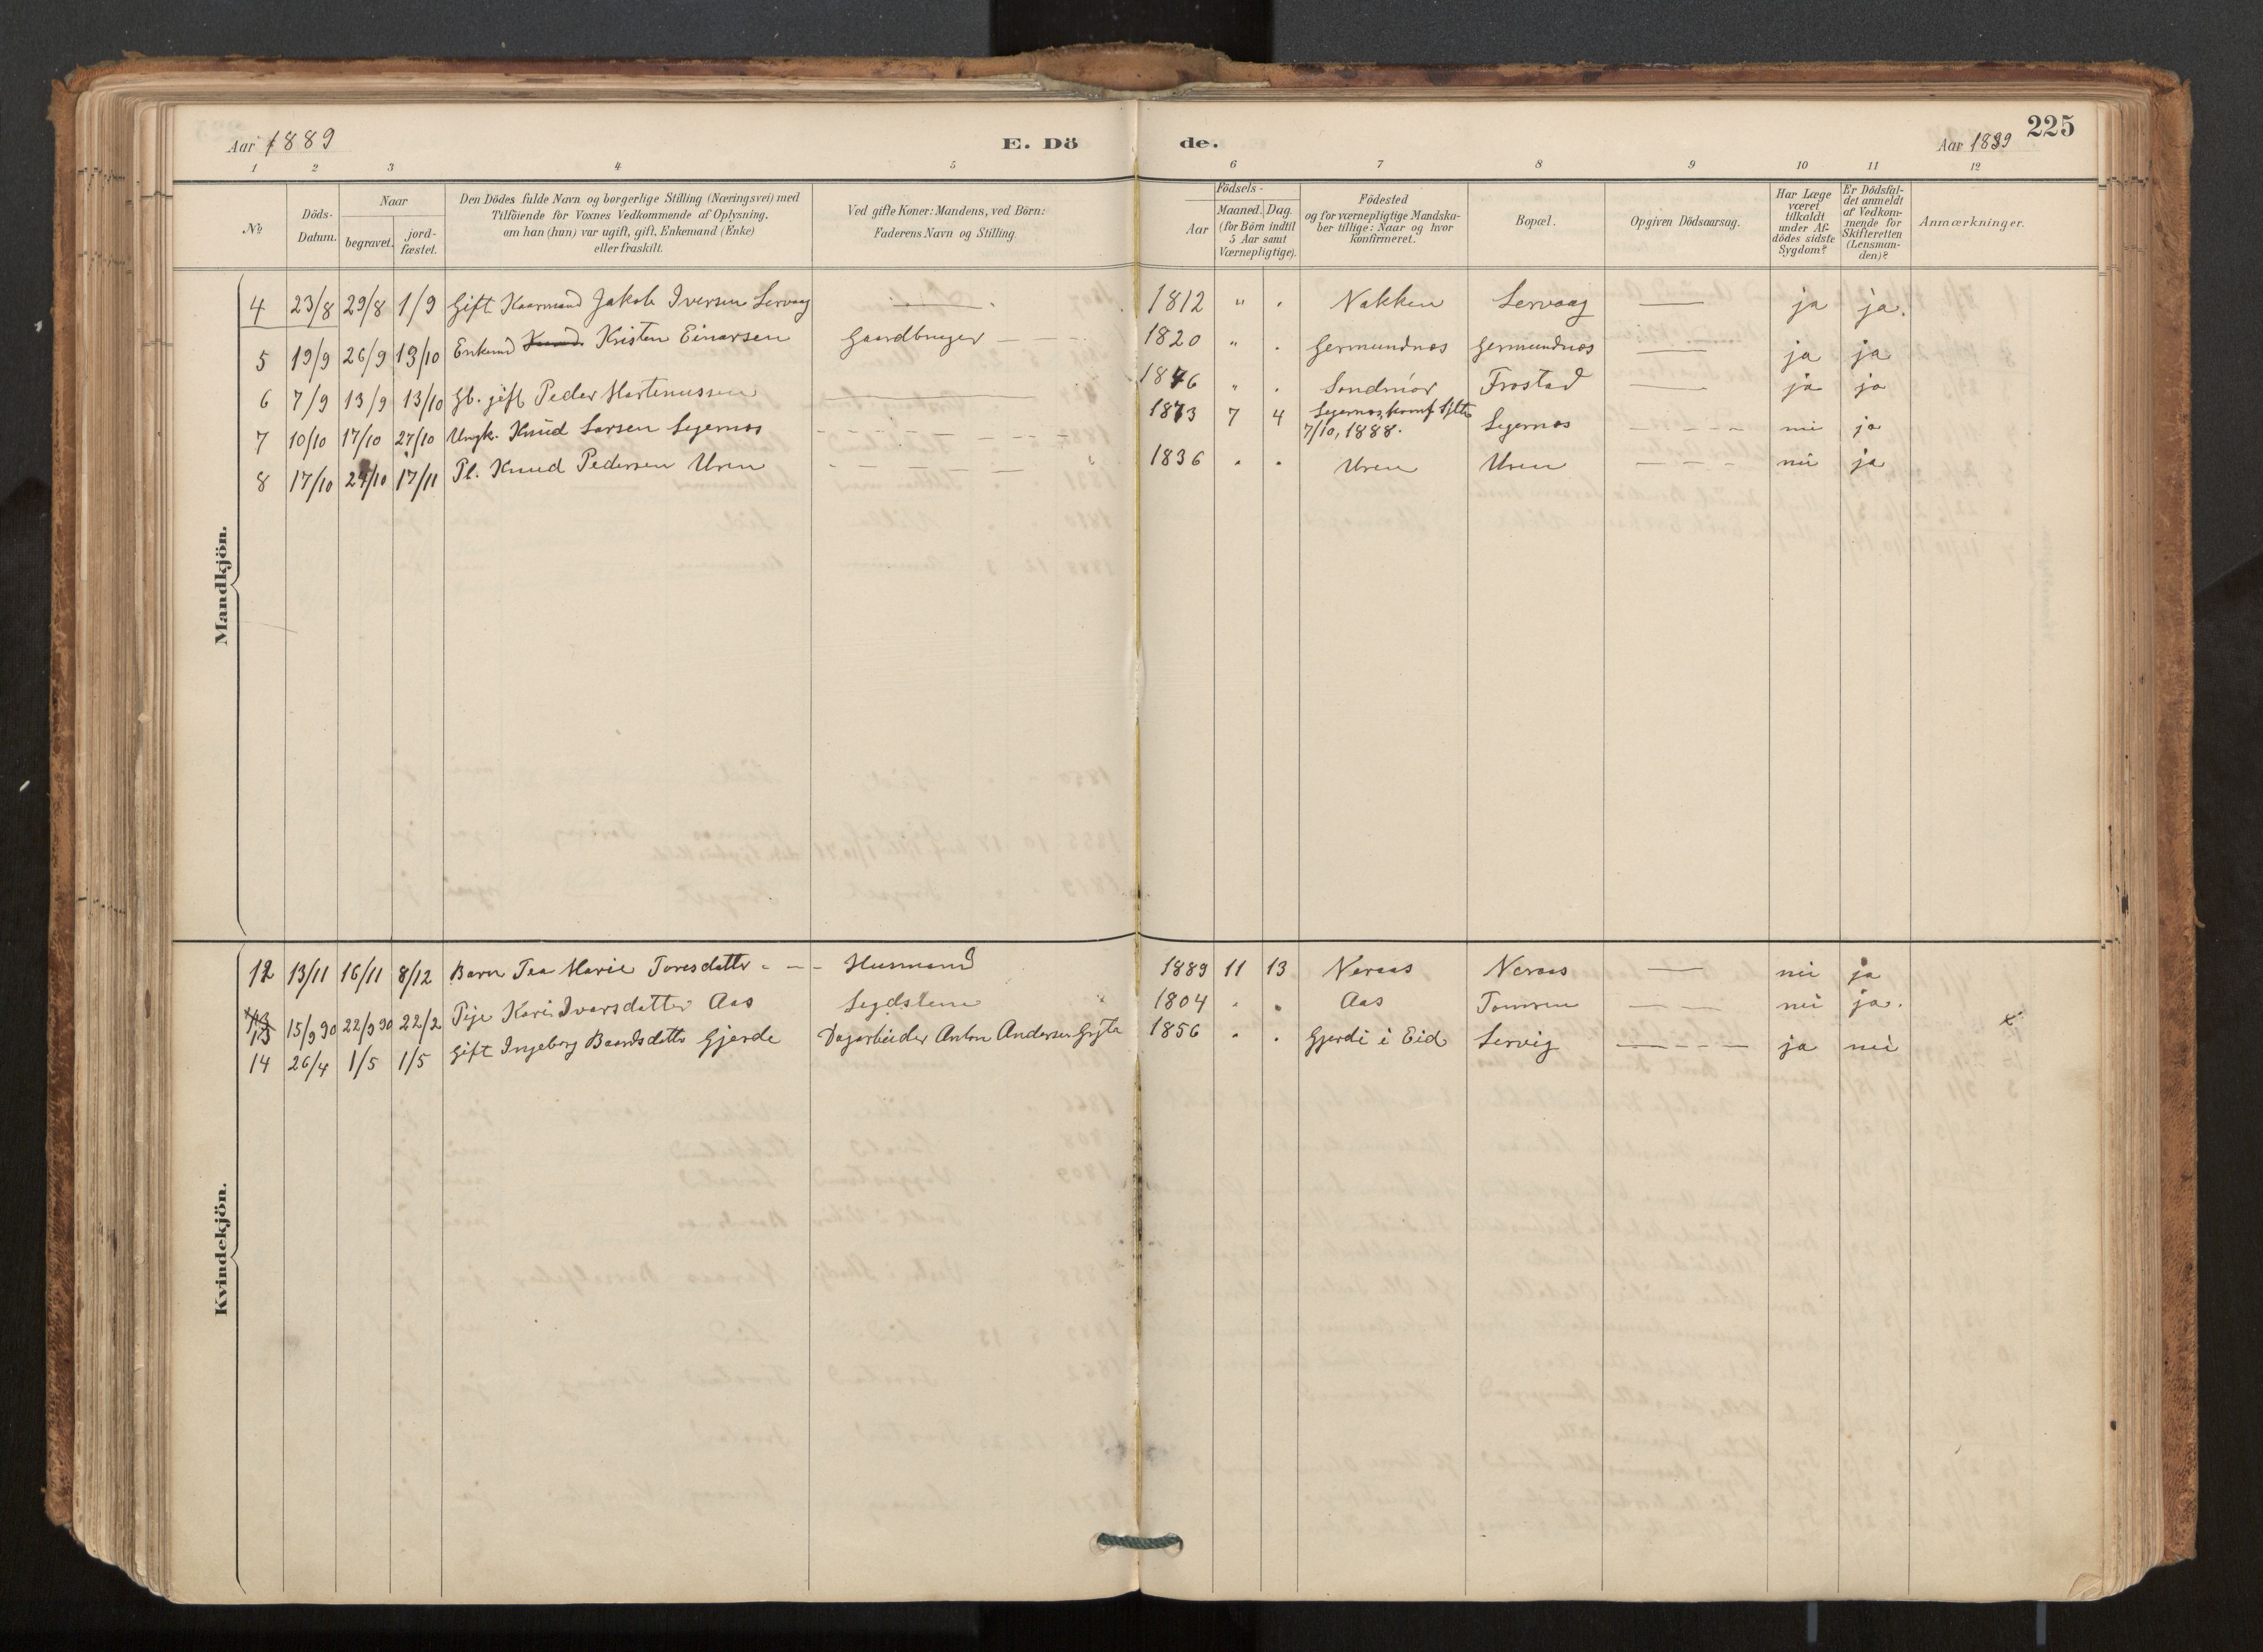 225
Aar 1889
E. Döde.
Aar 1889
1 2 3 4 5 6 7 8 9 10 11 12
No
Döds-Datum.
Naar
begravet.
jord-fæstet.
Den Dödes fulde Navn og borgerlige Stilling (Næringsvei) med
Tilföiende for Voxnes Vedkommende af Oplysning,
om han (hun) var ugift, gift, Enkemand (Enke)
eller fraskilt.
Ved gifte Koner: Mandens, ved Börn:
Faderens Navn og Stilling.
Födsels-
Aar
Maaned. Dag.
(for Börn indtil
5 Aar samt
Værnepligtige).
Födested
og for værnepligtige Mandska-
ber tillige: Naar og hvor
konfirmeret.
Bopæl.
Opgiven Dödsaarsag.
Har Læge
været
tilkaldt
under Af-
dödes sidste
Sygdom?
Er Dödsfal-
det anmeldt
af Vedkom-
mende for
Skifteretten
(Lensman-
den)?
Anmærkninger.
Mandkjön.
4 23/8 29/8 1/9 Gift Kaarmand Jakob Iversen Servaag — 1812 " . Nakken Servaag — ja ja.
5 19/9 26/9 13/10 Enkemd Knud Kristen Einarsen Gaardbruger — 1820 " . Germundnæs Germundnæs — ja ja
6 7/9 13/9 13/10 Gb. gift Peder Martinussen — 1846 " . Söndmör Frostad — ja ja
7 10/10 17/10 27/10 Ungk. Knud Larsen Legernæs - - - 1873 7 4 Legernæs, komf
7/10, 1888. Legernæs - - - nei ja
8 17/10 24/10 17/11 Pl. Knud Pedersen Uren — 1836 . . Uren Uren — nei ja
Kvindekjön.
12 13/11 16/11 8/12 Barn Tea Marie Toresdatter - - - Husmand 1889 11 13 Neraas Neraas — nei ja
13 15/9 90 22/9 90 22/2 Pige Kari Ivarsdatter Aas Legdslem 1804 . . Aas Tomren — nei ja.
14 26/4 1/5 1/5 Gift Ingeborg Baardsdatter Gjerde Dagarbeider Anton Andersen Gryta 1856 . . Gjerde i Eid Servig — ja nei x